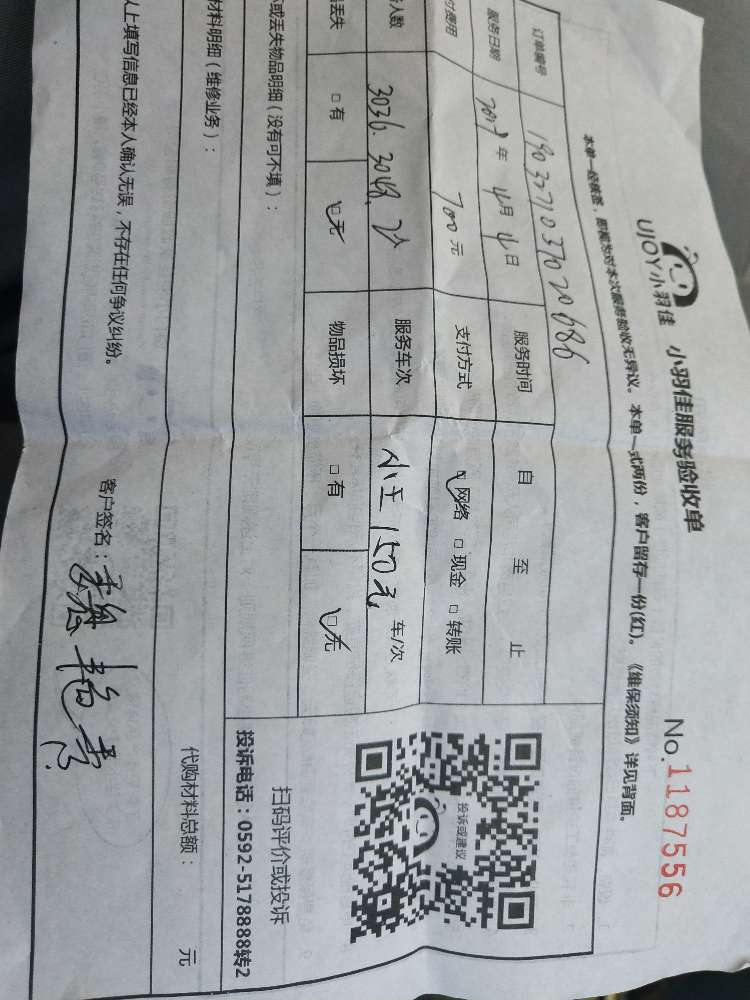 UJOY小羽佳 小羽佳服务验收单
No.1187556
本单一经核签，即视为对本次服务验收无异议。本单一式两份，客户留存一份(红)。《维保须知》详见背面。
订单编号
服务日期 2019年 4月 4日 服务时间 自 至 止
付费用 700元 支付方式 网络 □现金 □转账
人数 3036. 3048. 服务车次 小王150元 车/次
丢失 □有 □无 物品损坏 □有 □无
或丢失物品明细（没有可不填）：
投诉或建议
扫码评价或投诉
投诉电话：0592-5178888转2
材料明细（维修业务）：
代购材料总额： 元
以上填写信息已经本人确认无误，不存在任何争议纠纷。
客户签名：